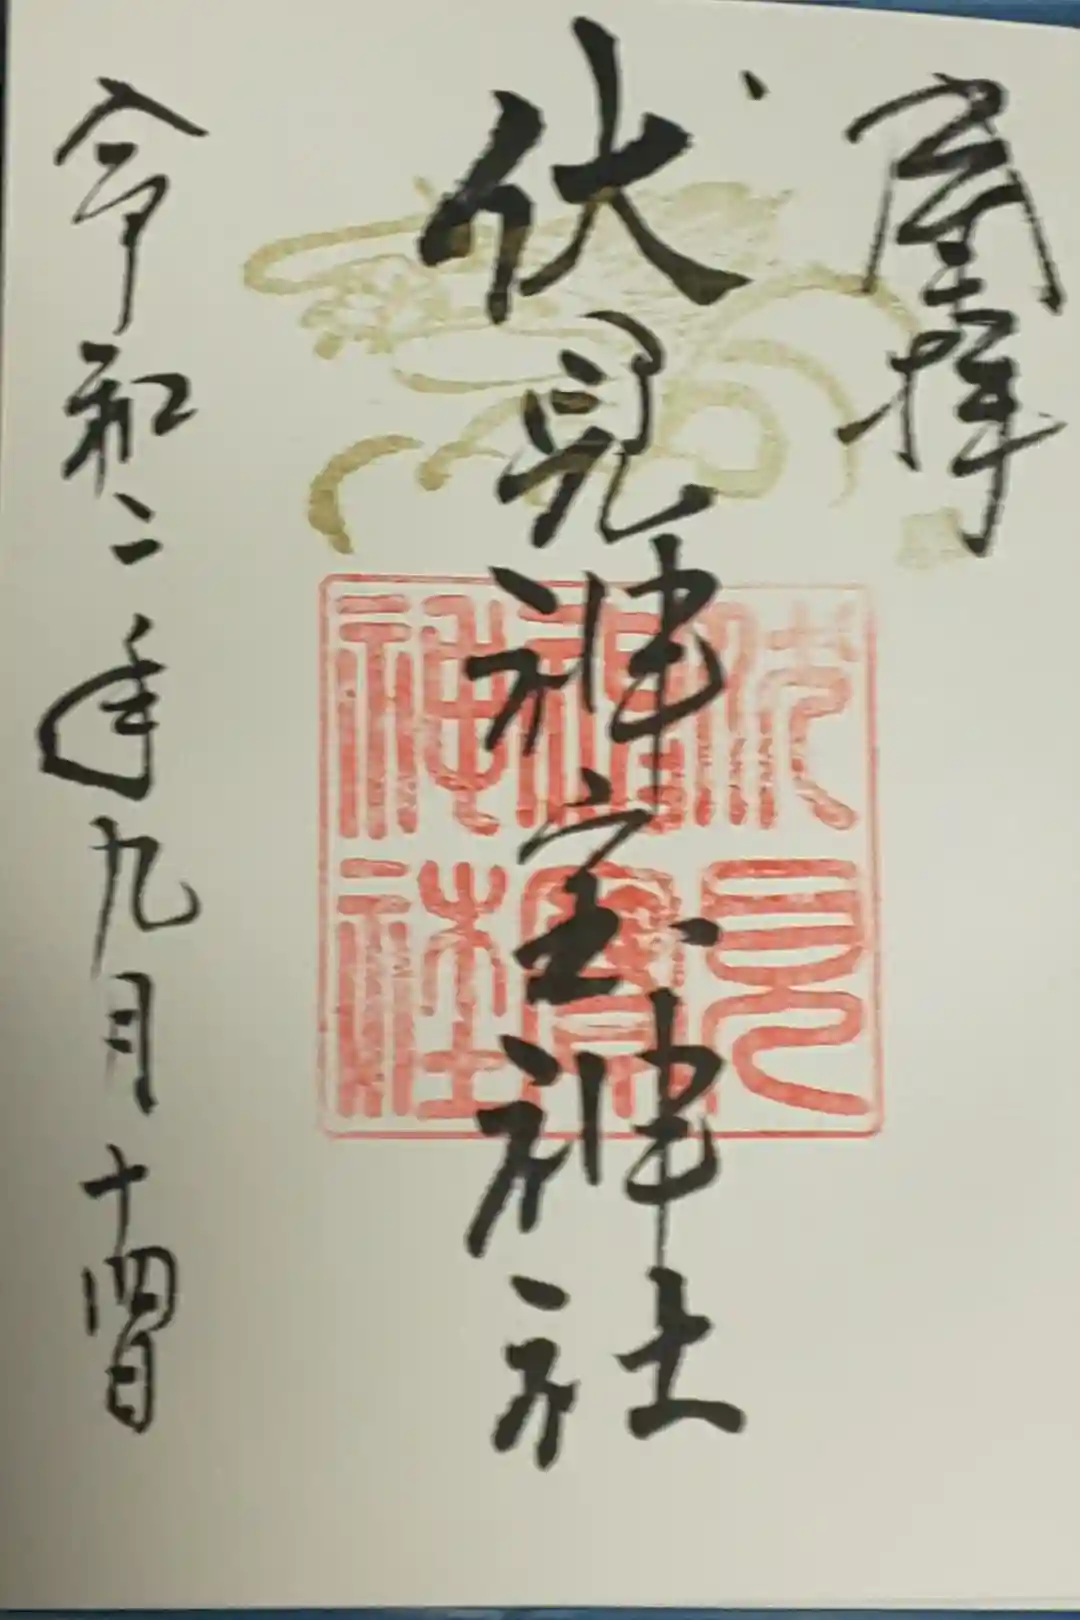 拝
伏見神宝神社
伏見
神寶
神社
令和二年九月十四日